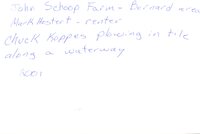 John Schoop Farm - Bernard area
Mark Hostert - renter
Chuck Koppes plowing in tile
along a waterway